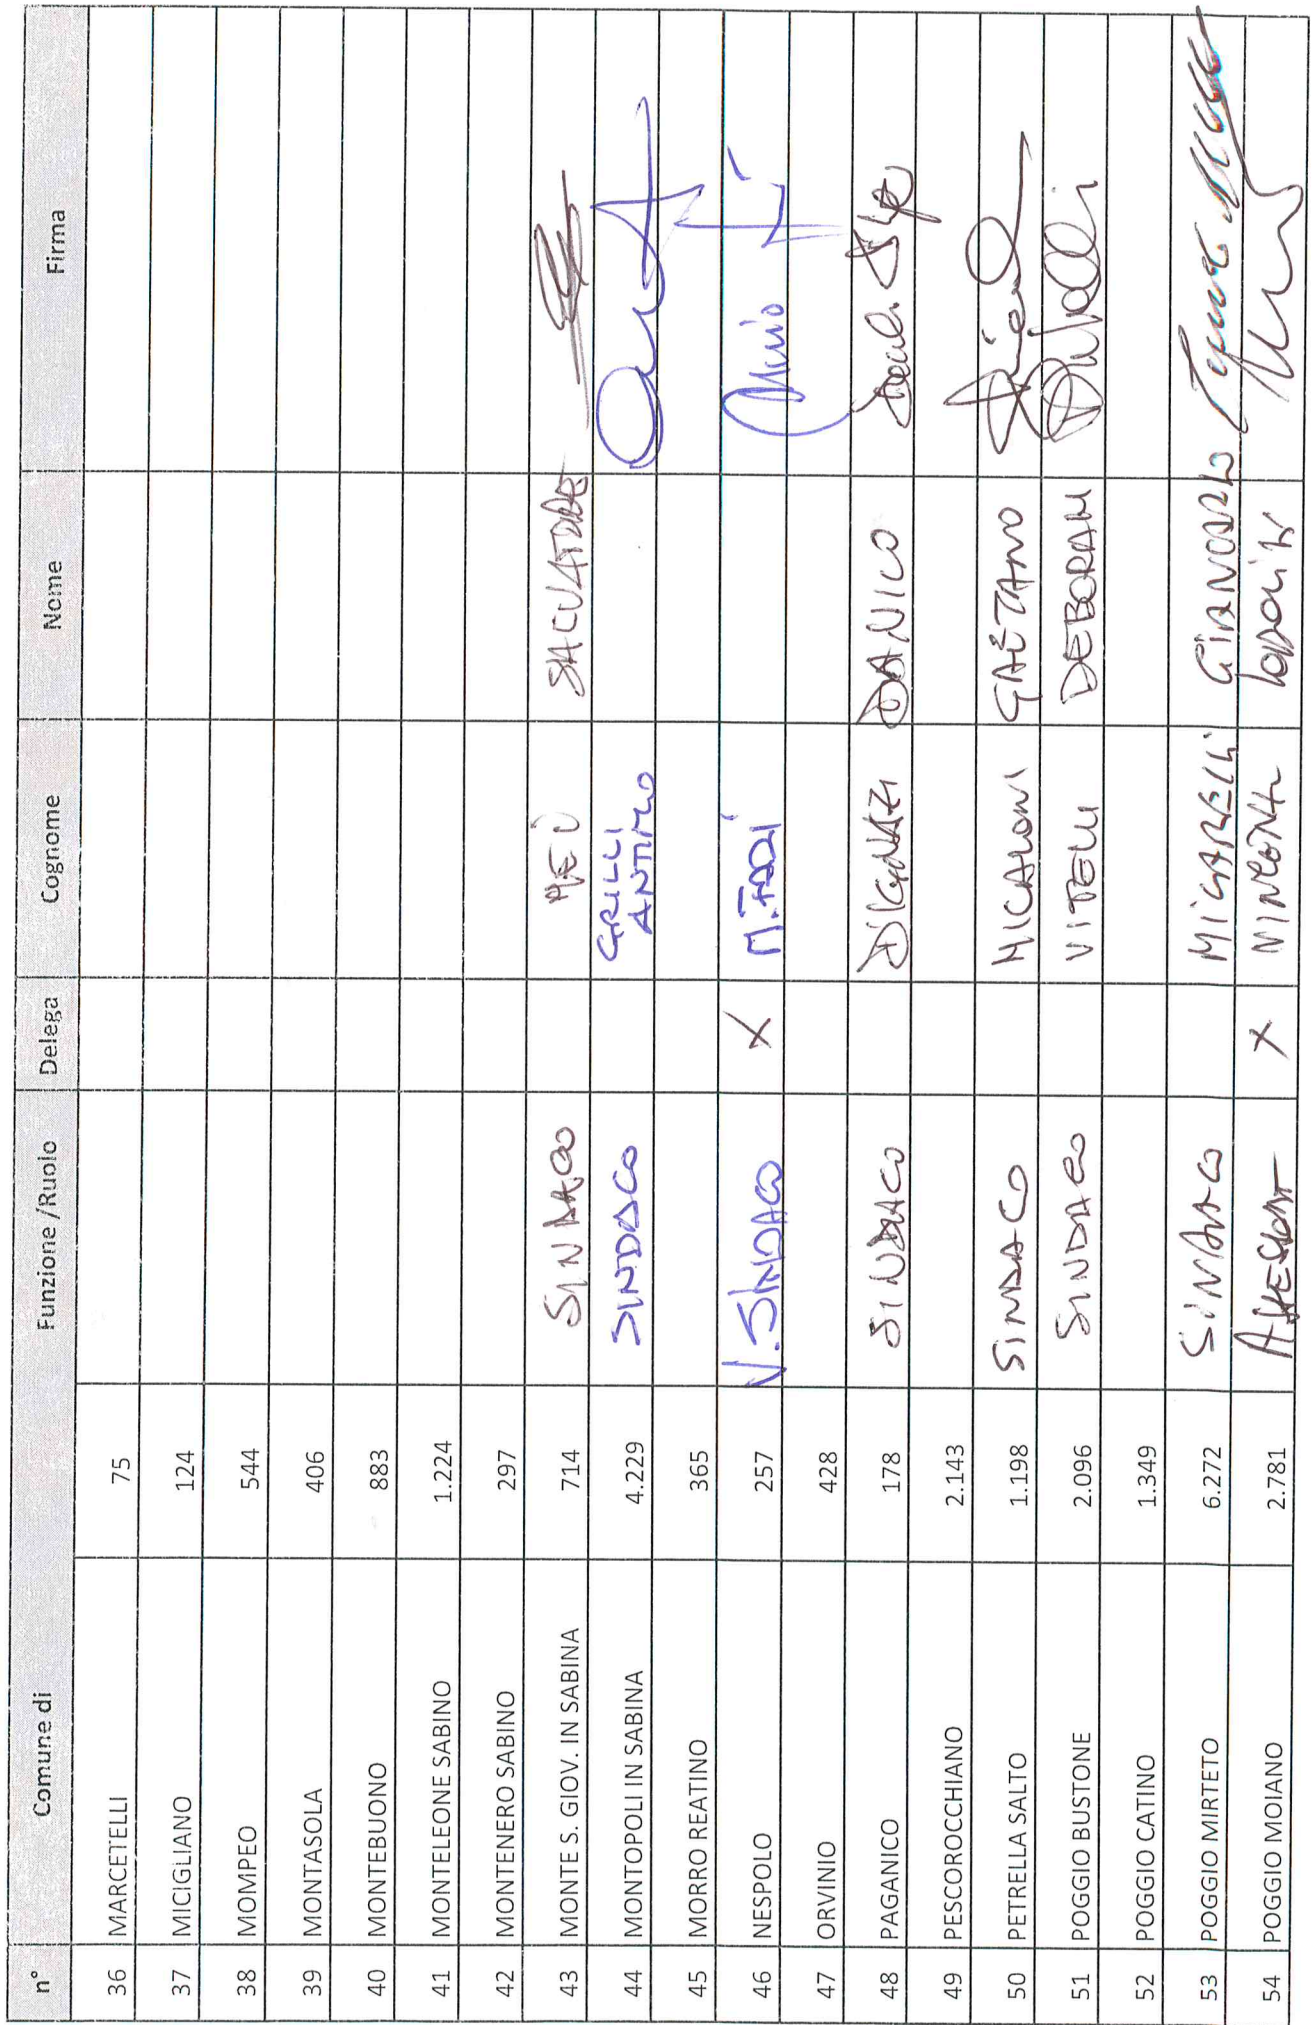 n° Comune di Funzione /Ruolo Delega Cognome Nome Firma
36 MARCETELLI 75
37 MICIGLIANO 124
38 MOMPEO 544
39 MONTASOLA 406
40 MONTEBUONO 883
41 MONTELEONE SABINO 1.224
42 MONTENERO SABINO 297
43 MONTE S. GIOV. IN SABINA 714 SINDACO MEI SALVATORE
44 MONTOPOLI IN SABINA 4.229 SINDACO GRILLI ANTIMO
45 MORRO REATINO 365
46 NESPOLO 257 V. SINDACO X
47 ORVINIO 428
48 PAGANICO 178 SINDACO DIGNAZI DANICO
49 PESCOROCCHIANO 2.143
50 PETRELLA SALTO 1.198 SINDACO MICALONI GAETANO
51 POGGIO BUSTONE 2.096 SINDACO VITELLI DEBORAH
52 POGGIO CATINO 1.349
53 POGGIO MIRTETO 6.272 SINDACO MICARELLI GIANCARLO
54 POGGIO MOIANO 2.781 X